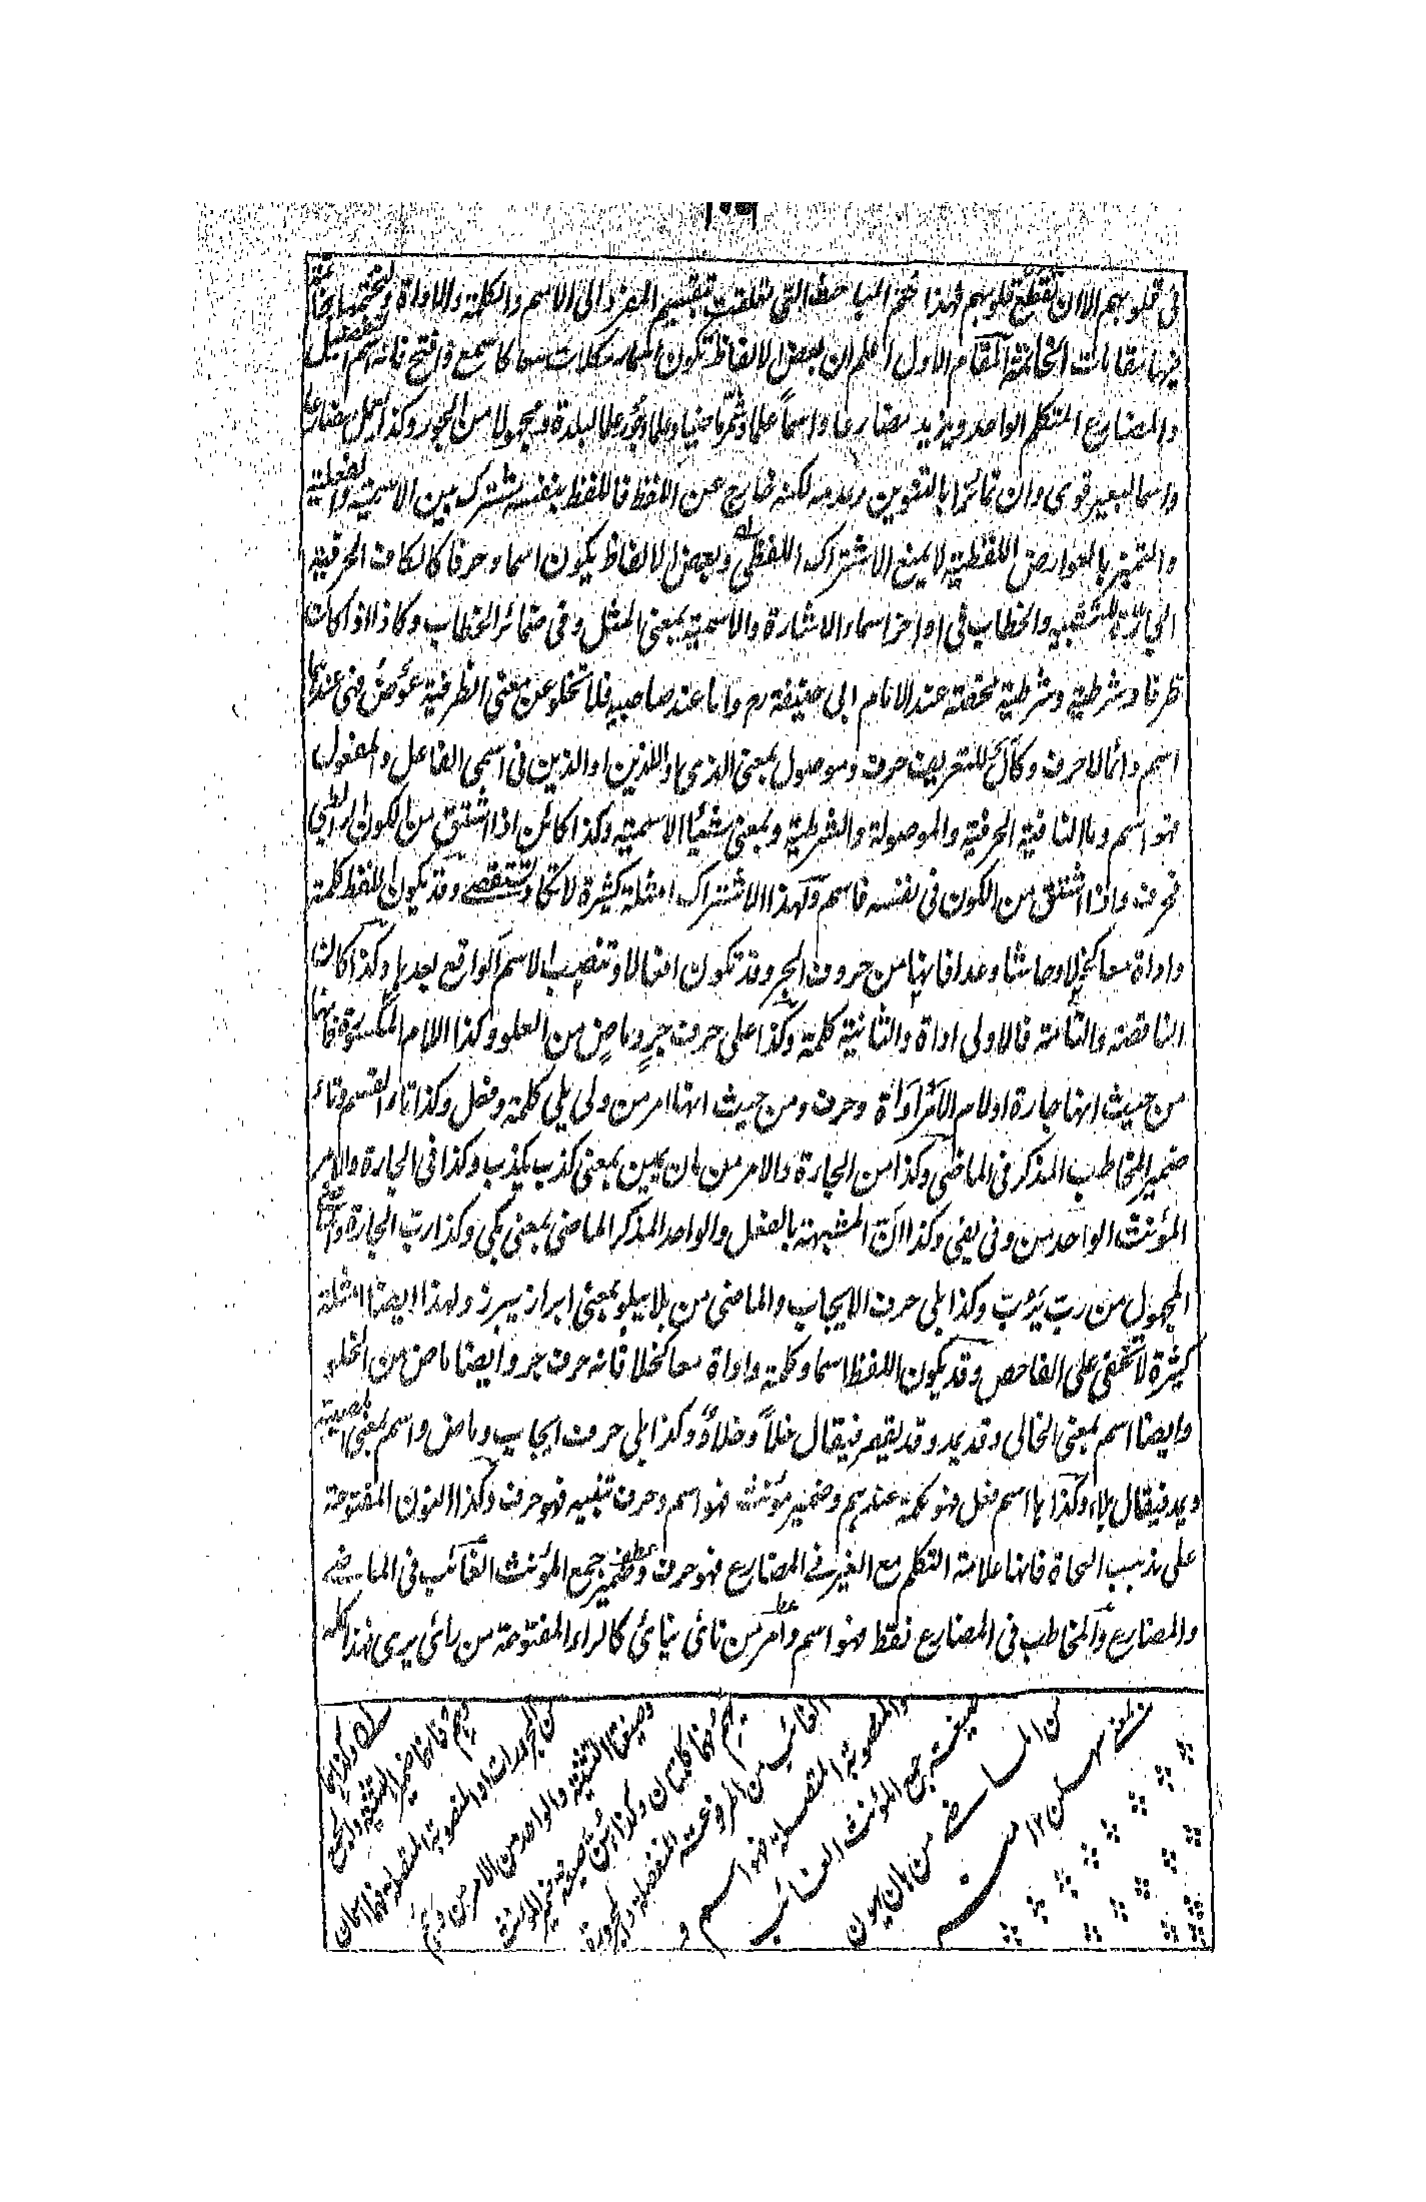 ١٠٩
فى قلوبهم الا ان تقطع قلوبهم فهذا ختم المباحث التى تعلقت بتقسيم المفرد الى الاسم والكلمة والاداة ولنختمها بخاتمة
فيها مقامات الخاتمة المقام الاول اعلم ان بعض الالفاظ تكون اسما وكلمات معا كاسمع وافتح فانه اسم التفضيل
والمضارع المتكلم الواحد ويزيد مضارعا واسما علما وشمر ماضيا وعلما وجور علما لبلدة ومجهولا من الجور وكذا يعمل مضارعا
واسما لبعير قوى وان تمايزا بالتنوين وعدمه لكنه خارج عن اللفظ فاللفظ بنفسه مشترك بين الاسمية والفعلية
والتميز بالعوارض اللفظية لا يمنع الاشتراك اللفظى وبعض الالفاظ يكون اسما وحرفا كالكاف الحرفية
الجارة للتشبيه والخطاب فى اواخر اسماء الاشارة والاسمية بمعنى المثل وفى ضمائر الخطاب وكاذا اذا كان
ظرفا وشرطية وشرطية محضة عند الامام ابى حنيفة رح واما عند صاحبيه فلا تخلو عن معنى الظرفية عوض فهى عندهما
اسم دائما لا حرف وكال للتعريف حرف وموصول بمعنى الذى او اللذين او الذين فى اسمى الفاعل والمفعول
فهو اسم وما النافية الحرفية والموصولة والشرطية وبمعنى شيئا الاسمية وكذا كائن اذا اشتق من الكون الرابطى
فحرف واذا اشتق من الكون فى نفسه فاسم ولهذا الاشتراك امثلة كثيرة لا تكاد تستقصى وقد يكون اللفظ كلمة
واداة معا كخلا وحاشا وعدا فانها من حروف الجر وقد تكون افعالا وتنصب الاسم الواقع بعدها وكذا كان
الناقصة والتامة فالاولى اداة والثانية كلمة وكذا على حرف جر وماض من العلو وكذا اللام المكسورة فانها
من حيث انها جارة او لام الامر اداة وحرف ومن حيث انها امر من ولى يلى كلمة وفعل وكذا تاء القسم وتاء
ضمير المخاطب المذكر فى الماضى وكذا من الجارة والامر من مان يمين بمعنى كذب يكذب وكذا فى الجارة والامر
المؤنث الواحد من وفى يفى وكذا ان المشبهة بالفعل والواحد المذكر الماضى بمعنى بكى وكذا رب الجارة والماضى
المجهول من رب يرب وكذا بلى حرف الايجاب والماضى من بلا يبلو بمعنى ابراز يبرز ولهذا ايضا امثلة
كثيرة لا تخفى على الفاحص وقد يكون اللفظ اسما وكلمة واداة معا كخلا فانه حرف جر وايضا ماض من الخلو
وايضا اسم بمعنى الخالى وقد يمد وقد يقصر فيقال خلأ وخلاء وكذا بلى حرف ايجاب وماض واسم بمعنى المصيبة
ويمد فيقال بلاء وكذا ها اسم فعل فهو كلمة عندهم وضمير مؤنث فهو اسم وحرف تنبيه فهو حرف وكذا النون المفتوحة
على مذهب النحاة فانها علامة التكلم مع الغير فى المضارع فهو حرف وضمير جمع المؤنث الغائب فى الماضى
والمضارع والمخاطب فى المضارع فقط فهو اسم وامر من نائ ينائ كالراء المفتوحة من رائ يرى فهذا كلمة
هم فانها ضمير التثنية والجمع
من المجرورات او المنصوبة المتصلة فهما اسمان
وصيغة التثنية والواحد من الامر من
يهم فهما كلمتان وكذا هن صيغة جمع المؤنث
الغائب من المرفوعة المنفصلة والمجرورة
والمنصوبة المتصلة فهو اسم و
صيغة جمع المؤنث الغائب
من الماضى من هان يهون
١٢ منه